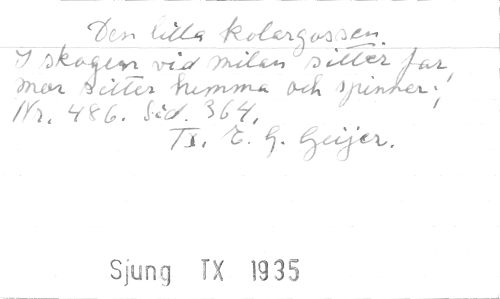 Den lilla kolargossen.
I skogen vid milan sitter far,
mor sitter hemma och spinner:,
Nr. 486. Sid. 364.
Tx. E. G. Geijer.
Sjung TX 1935